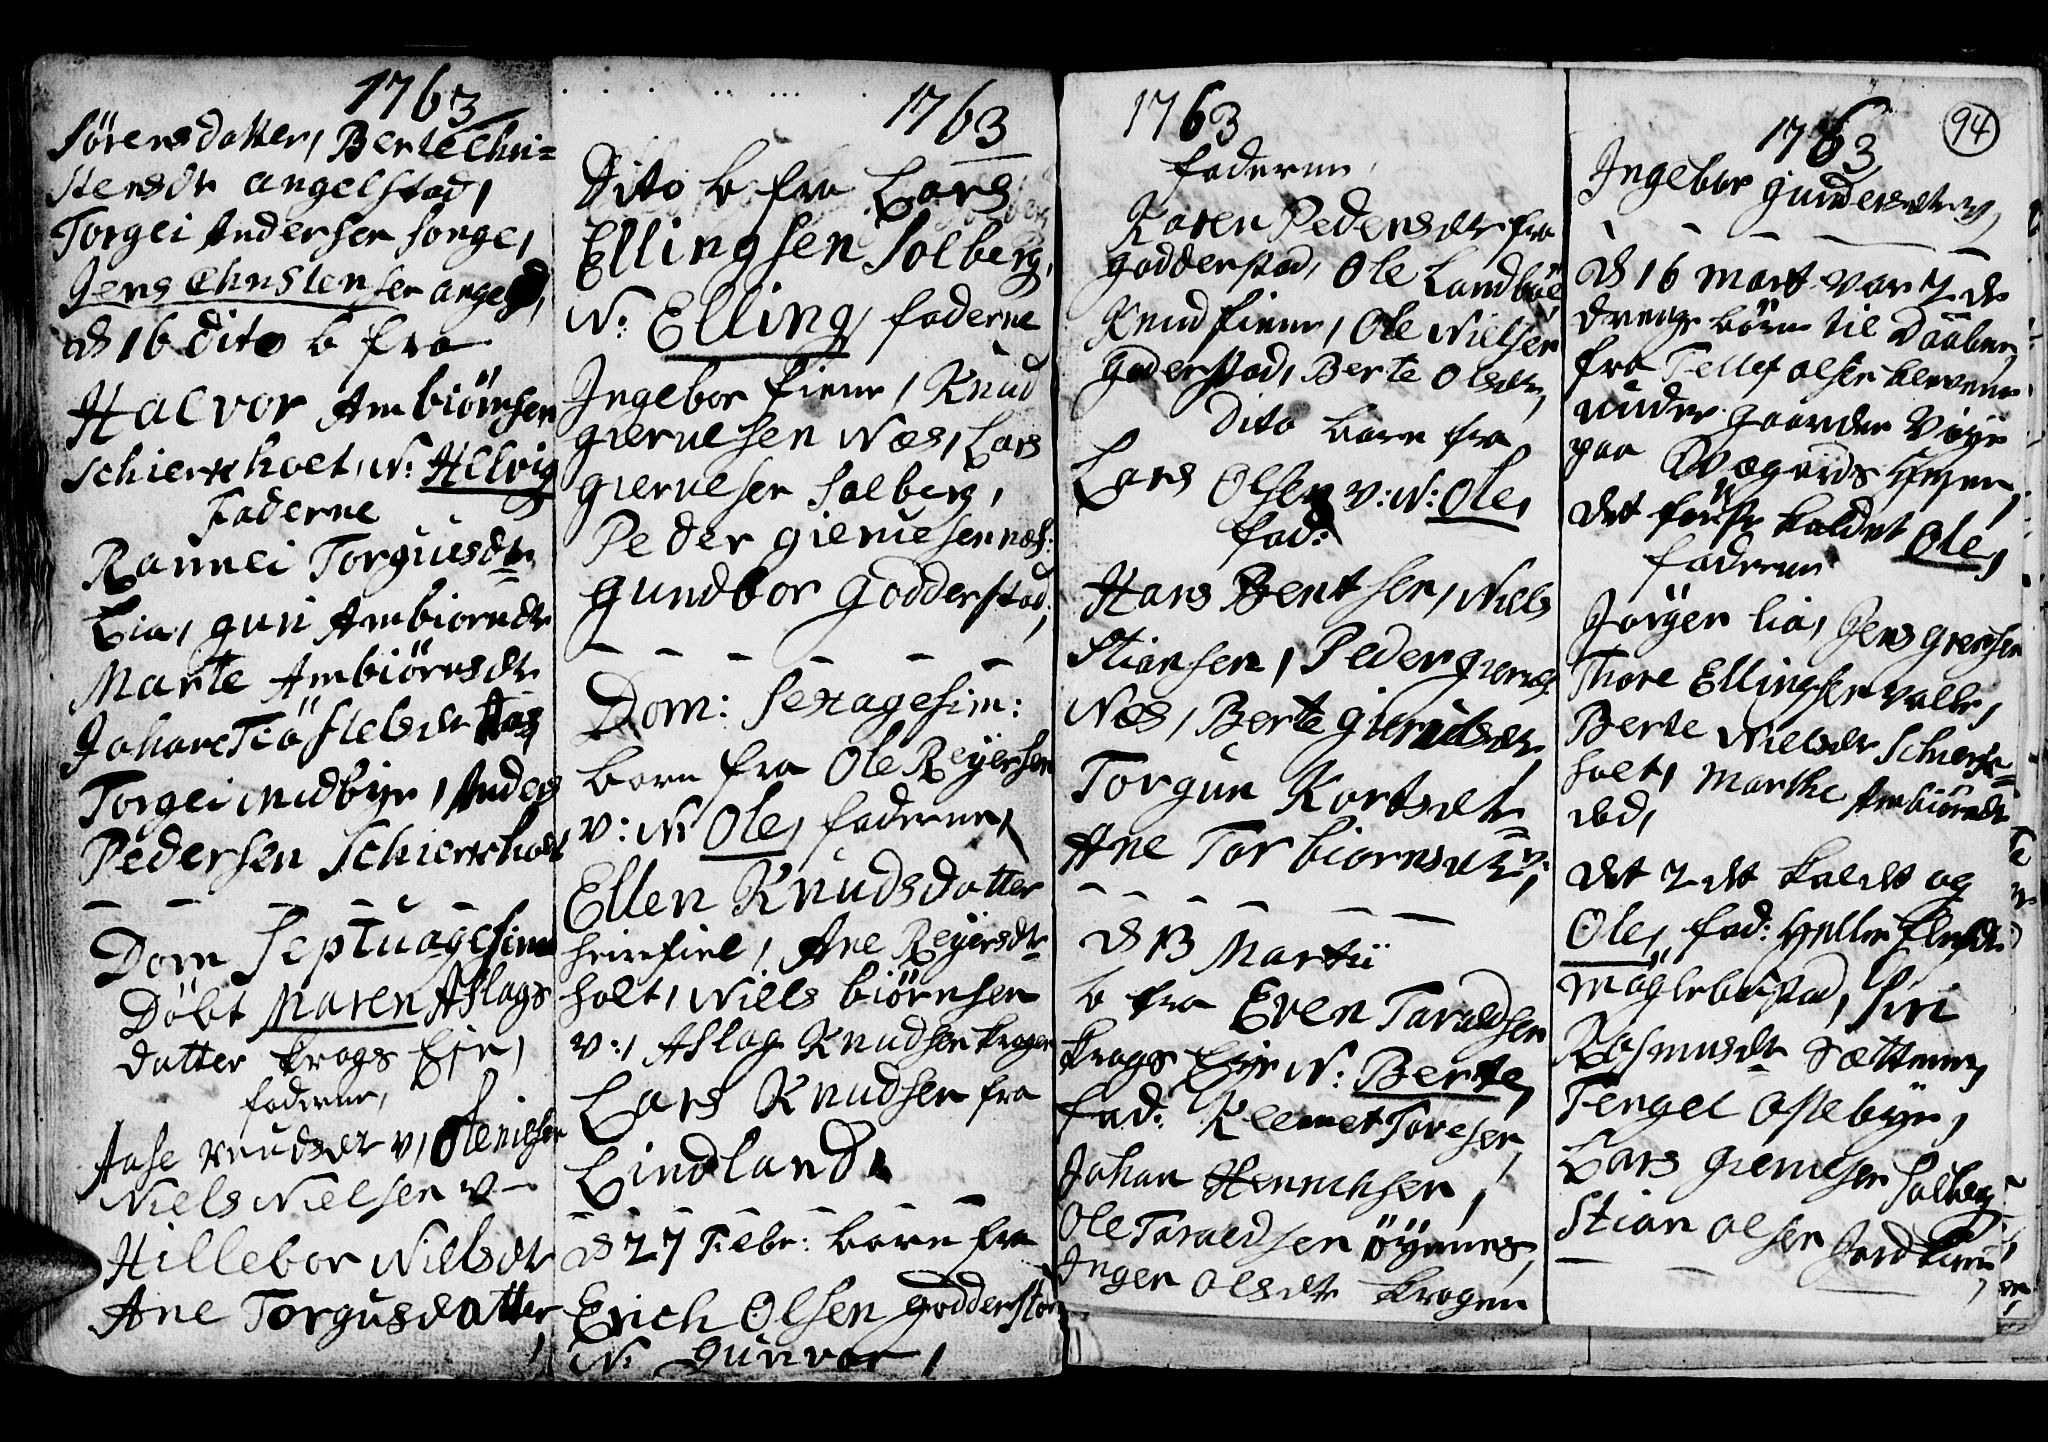 1763
Sörensdatter, Berte Chri=
stensdr angelstad,
Torgei Andersen songe,
Jens Christensen angels,
D 16 dito b fra
Halvor Ambiörnsen
Schiersholt, N: Helvig
Faderne
Rannei Torgusdr
Lia, guri Ambiorndr
Marte Ambiörnsdr
Johane Tiöstelsdr
Torgei midbÿe, Anders
Pedersen Schiersholt
Dom Septuagesima
Döbt Maren Aslags
datter krogs Eje,
faderne,
Aase Knudsdr v, Ole nielsen
Niels Nielsen v
Hillebor Nielsdr
Ane Torgusdatter,
1763
Dito b fra Lars
Ellingsen Solberg,
N: Elling, faderne
Ingebor fiane, Knud
gierulsen Næs, Lars
gierulsen Solberg,
Peder gierulsen næs:
gundbor godderstad,
Dom: Sexagesim:
barn fra Ole Reÿersen
v: N Ole, faderne,
Ellen Knudsdatter
, Ane Reÿersdr
holt, Niels biörnsen
v:, Aslag Knudsen krogen
Lars Knudsen fra
Lindland
D 27 Febr: barn fra
Erich Olsen godderstad
N: Gunvor,
1763
faderne,
Karen Pedersdr fra
godderstad, Ole Landböe
Knud fiane, Ole Nielsen
goderstad, Berte Olsdr,
Dito barn fra
Lars Olsen v: N: Ole,
fad:
Hans Bentsen, Niels
Stiansen, Peder gieruls
Næs, Berte gierulsdr
Torgun Kortsdr
Ane Torbiornsdr v:,
D 13 Martii
b fra Even Taraldsen
krogs Eje N: Berte,
fad: Klemet Toresen,
Johan Henrichsen,
Ole Taraldsen öÿnnes,
Inger Olsdr krogen
94
1763
Ingebor gundersdr v,
D 16 Mart var 2 de
drenge börn til Daaben,
fra Tellef olsen klevene
under gaarden Vöye
paa
det förste kaldet Ole,
faderne
Jörgen lia, Jens
Thore Ellingsen valle,
Berte Nielsdr Schiers=
holt, Marthe Ambiörndr
ibd,
det 2 det kaldt og
Ole, fad: Helle
möglebustad, Siri
Rasmusdr Sættene,
Tengel Ostebÿe,
Lars gierulsen Solberg
Stian olsen